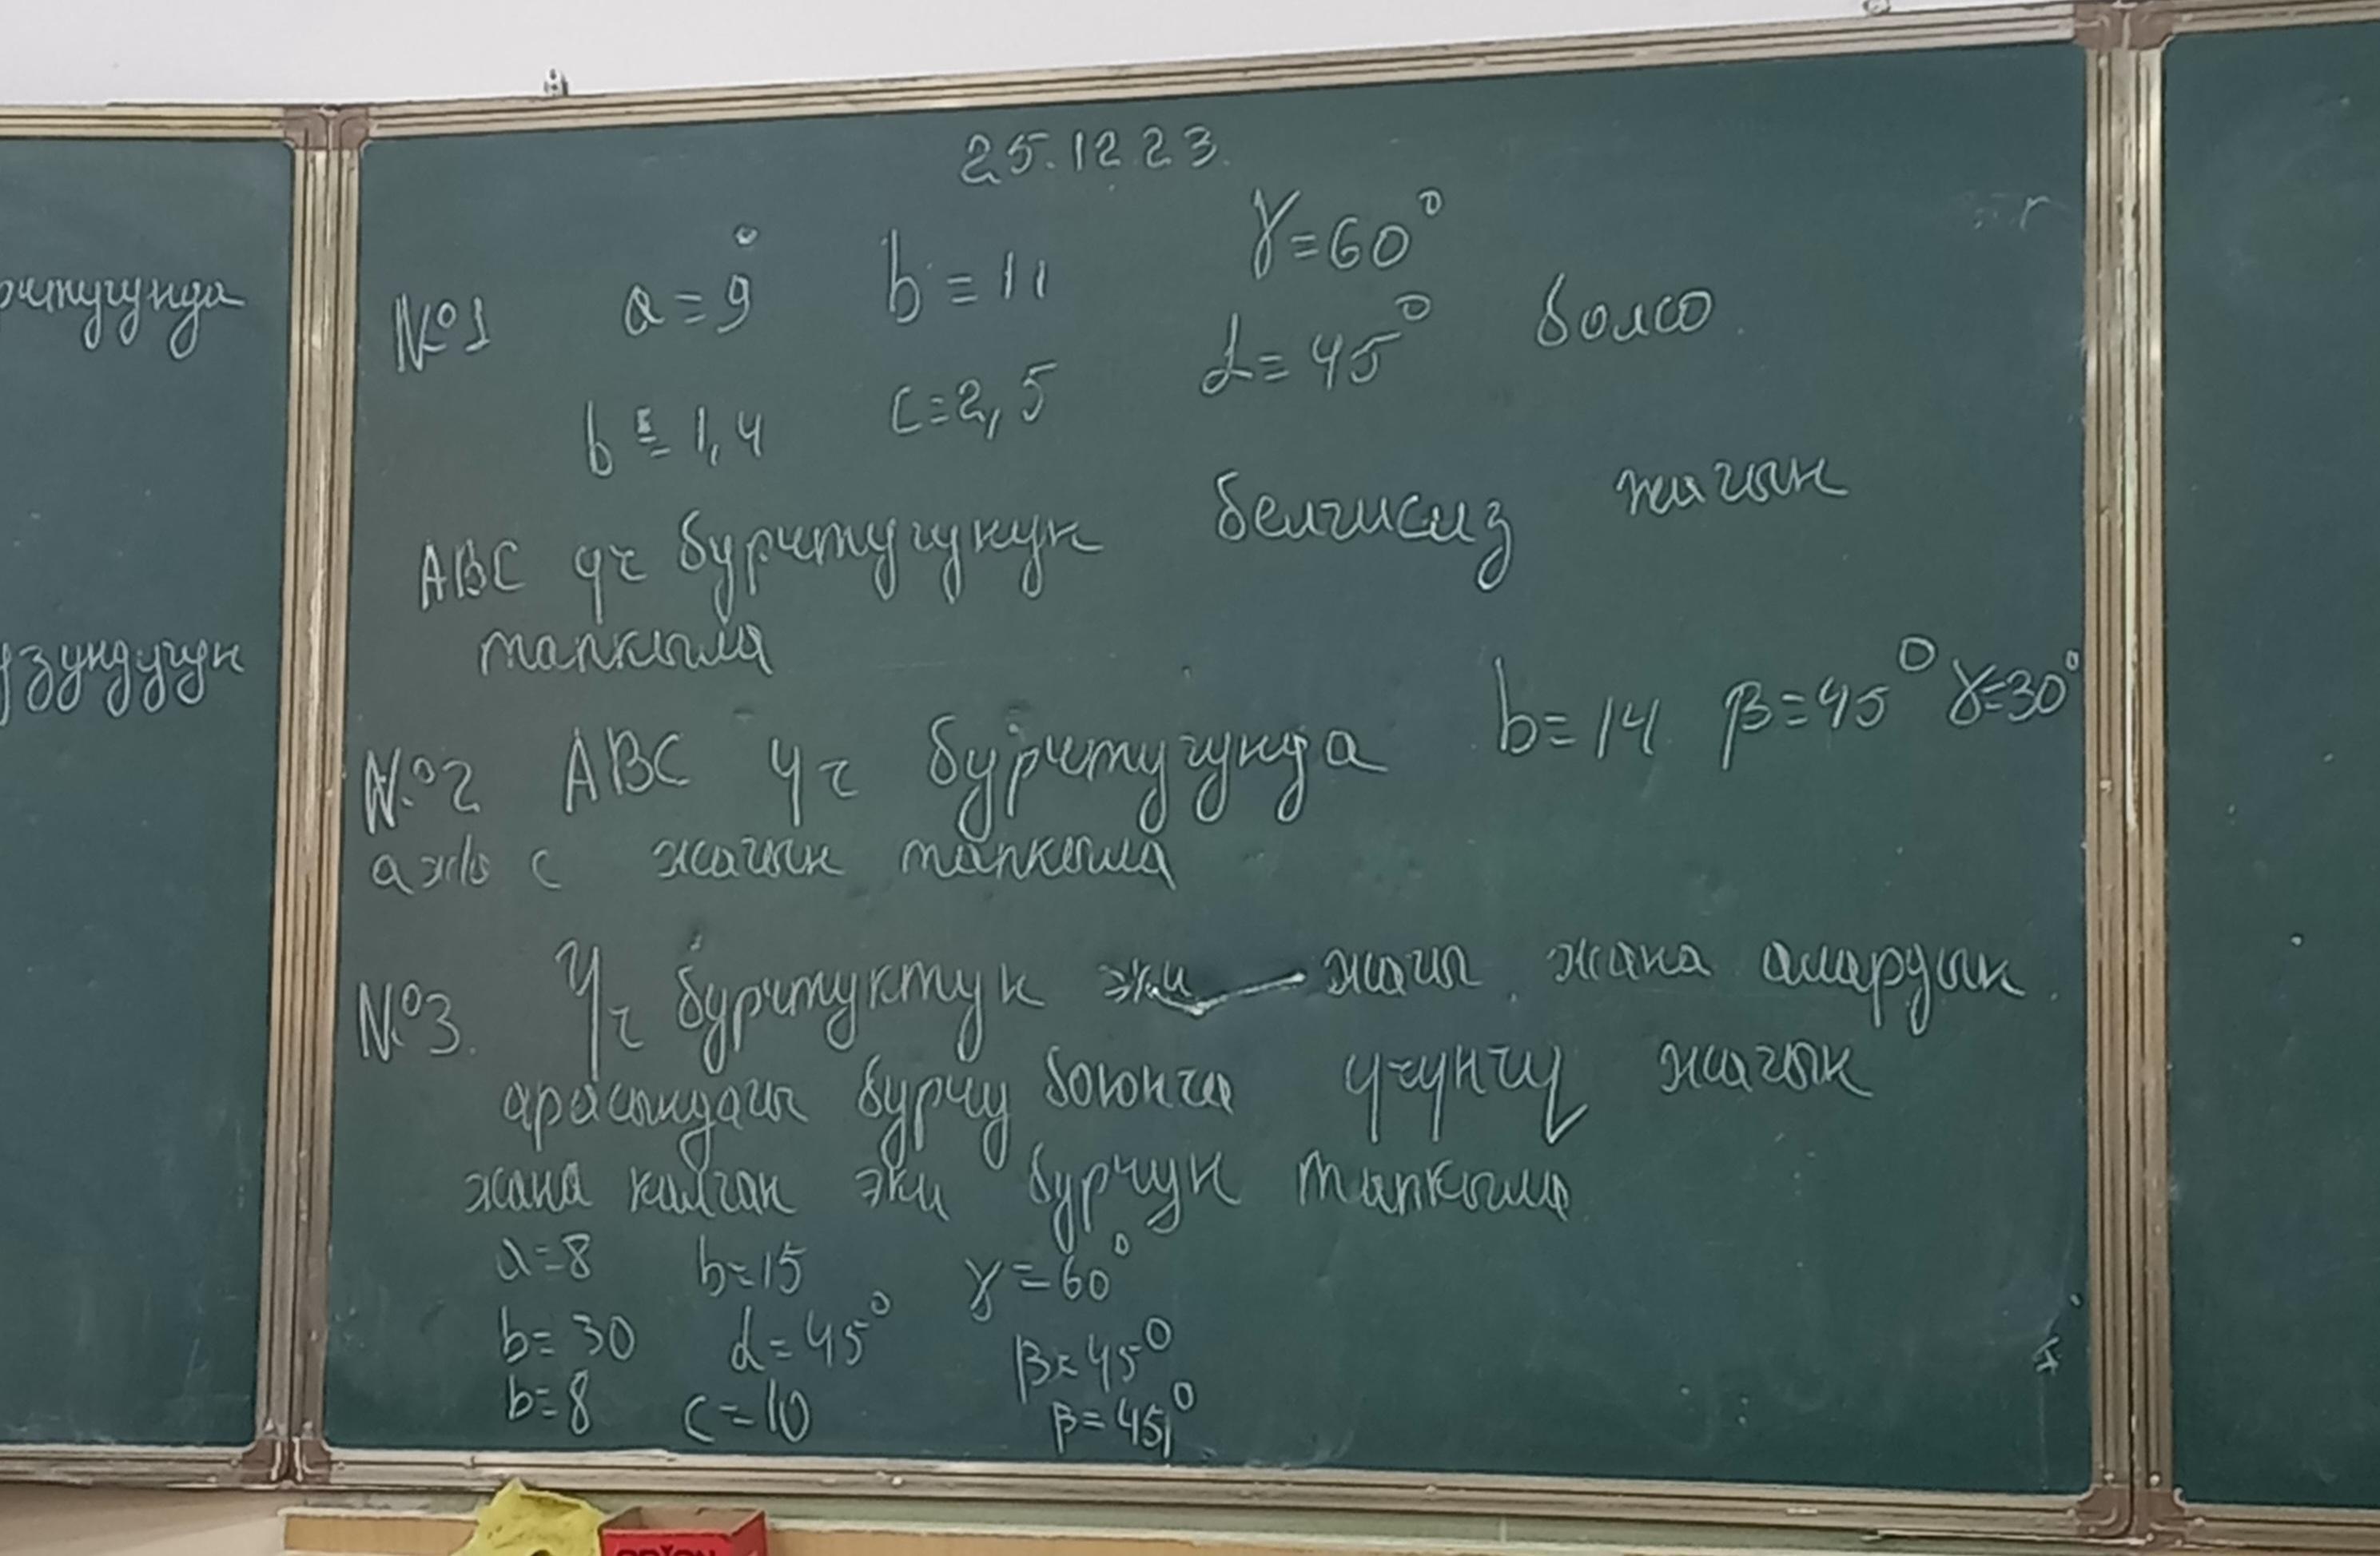 рчтугунда
узундугун
25.12.23.
№1 a=9 b=11 γ=60°
b=1,4 c=2,5 α=45° болсо
ABC үч бурчтугунун белгисиз жагын
тапкыла
№2 ABC үч бурчтугунда b=14 β=45° γ=30°
a ж/а c жагын тапкыла
№3. Үч бурчтуктун эки жагы жана алардын
арасындагы бурчу боюнча үчүнчү жагын
жана калган эки бурчун тапкыла
a=8 b=15 γ=60°
b=30 α=45° β=45°
b=8 c=10 β=45°